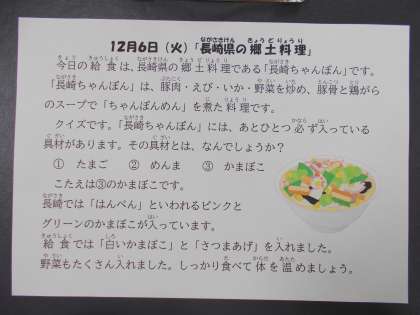 12月6日（火）「長崎県の郷土料理」
今日の給食は、長崎県の郷土料理である「長崎ちゃんぽん」です。
「長崎ちゃんぽん」は、豚肉・えび・いか・野菜を炒め、豚骨と鶏がら
のスープで「ちゃんぽんめん」を煮た料理です。
クイズです。「長崎ちゃんぽん」には、あとひとつ必ず入っている
具材があります。その具材とは、なんでしょうか？
① たまご ② めんま ③ かまぼこ
こたえは③のかまぼこです。
長崎では「はんぺん」といわれるピンクと
グリーンのかまぼこが入っています。
給食では「白いかまぼこ」と「さつまあげ」を入れました。
野菜もたくさん入れました。しっかり食べて体を温めましょう。